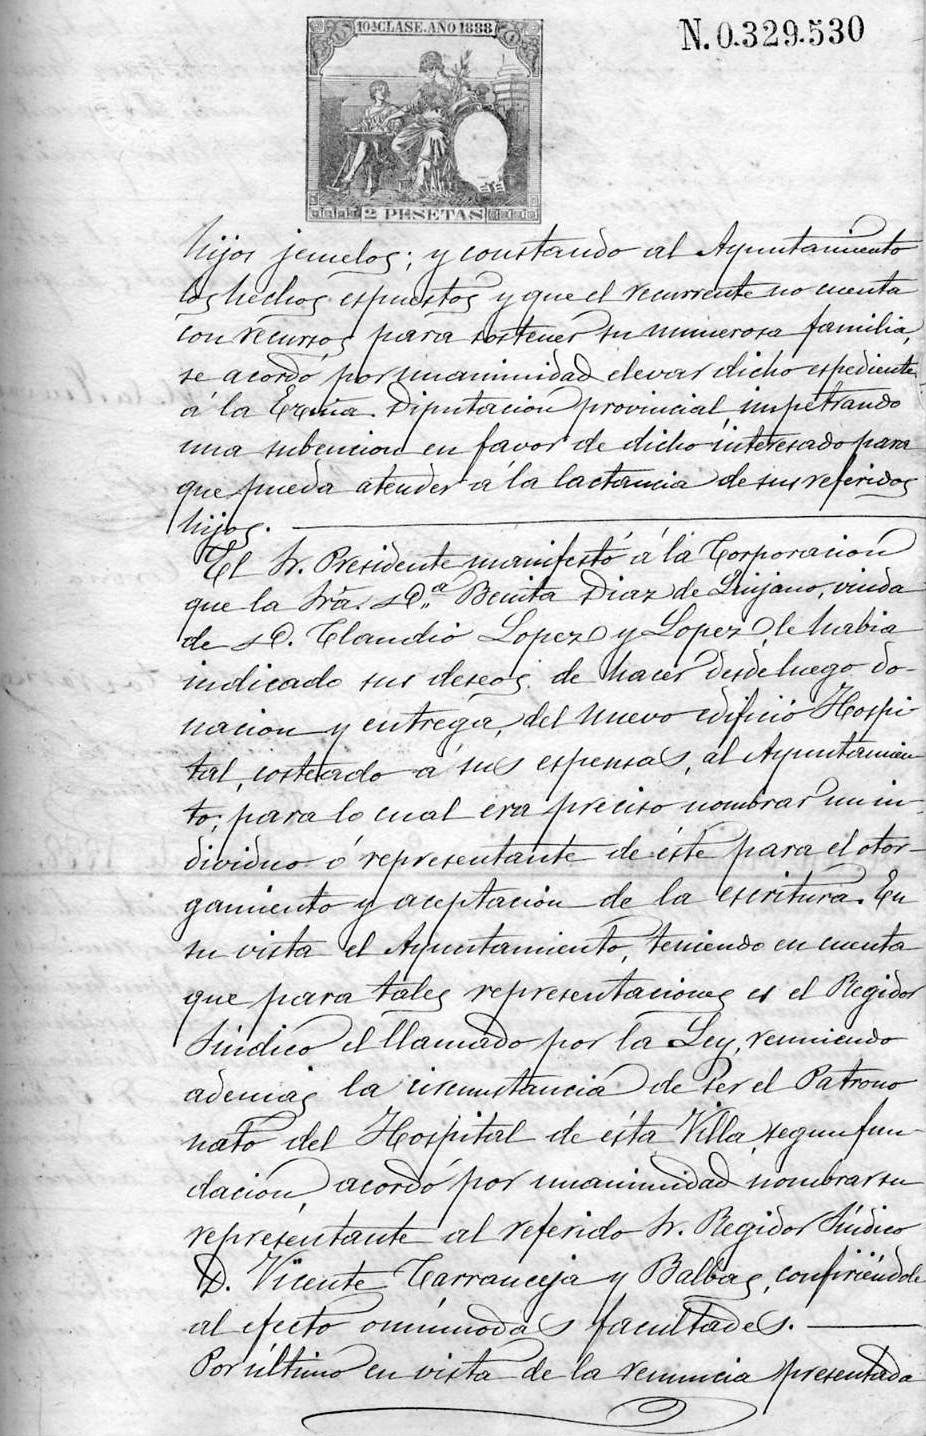 10ª CLASE. AÑO 1888
N. 0.329.530
2 PESETAS
hijos jemelos; y constando al Ayuntamiento
los hechos espuestos y que el recurrente no cuenta
con recursos para sostener su numerosa familia,
se acordó por unanimidad elevar dicho espediente
á la Excma. Diputacion provincial impetrando
una subencion en favor de dicho interesado para
que pueda atender á la lactancia de sus referidos
hijos.
El Sr. Presidente manifestó á la Corporacion
que la Sra. Dª Benita Diaz de Quijano, viuda
de D. Claudio Lopez y Lopez, le habia
indicado sus deseos de hacer desde luego do-
nacion y entrega, del nuevo edificio Hospi-
tal, costeado á sus espensas, al Ayuntamien-
to; para lo cual era preciso nombrar un in-
dividuo ó representante de éste para el otor-
gamiento y aceptacion de la escritura. En
su vista el Ayuntamiento, teniendo en cuenta
que para tales representaciones es el Regidor
Sindico el llamado por la Ley, reuniendo
ademas la circunstancia de ser el Patrono
nato del Hospital de ésta Villa, segun fun-
dacion, acordó por unanimidad nombrar su
representante al referido Sr. Regidor Síndico
D. Vicente Carranceja y Balbas, confiriéndole
al efecto omnimodas facultades.
Por último en vista de la renuncia presentada